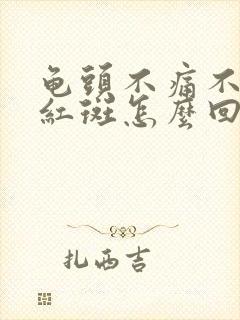 龟頭不痛不
紅斑怎麽回
扎西吉